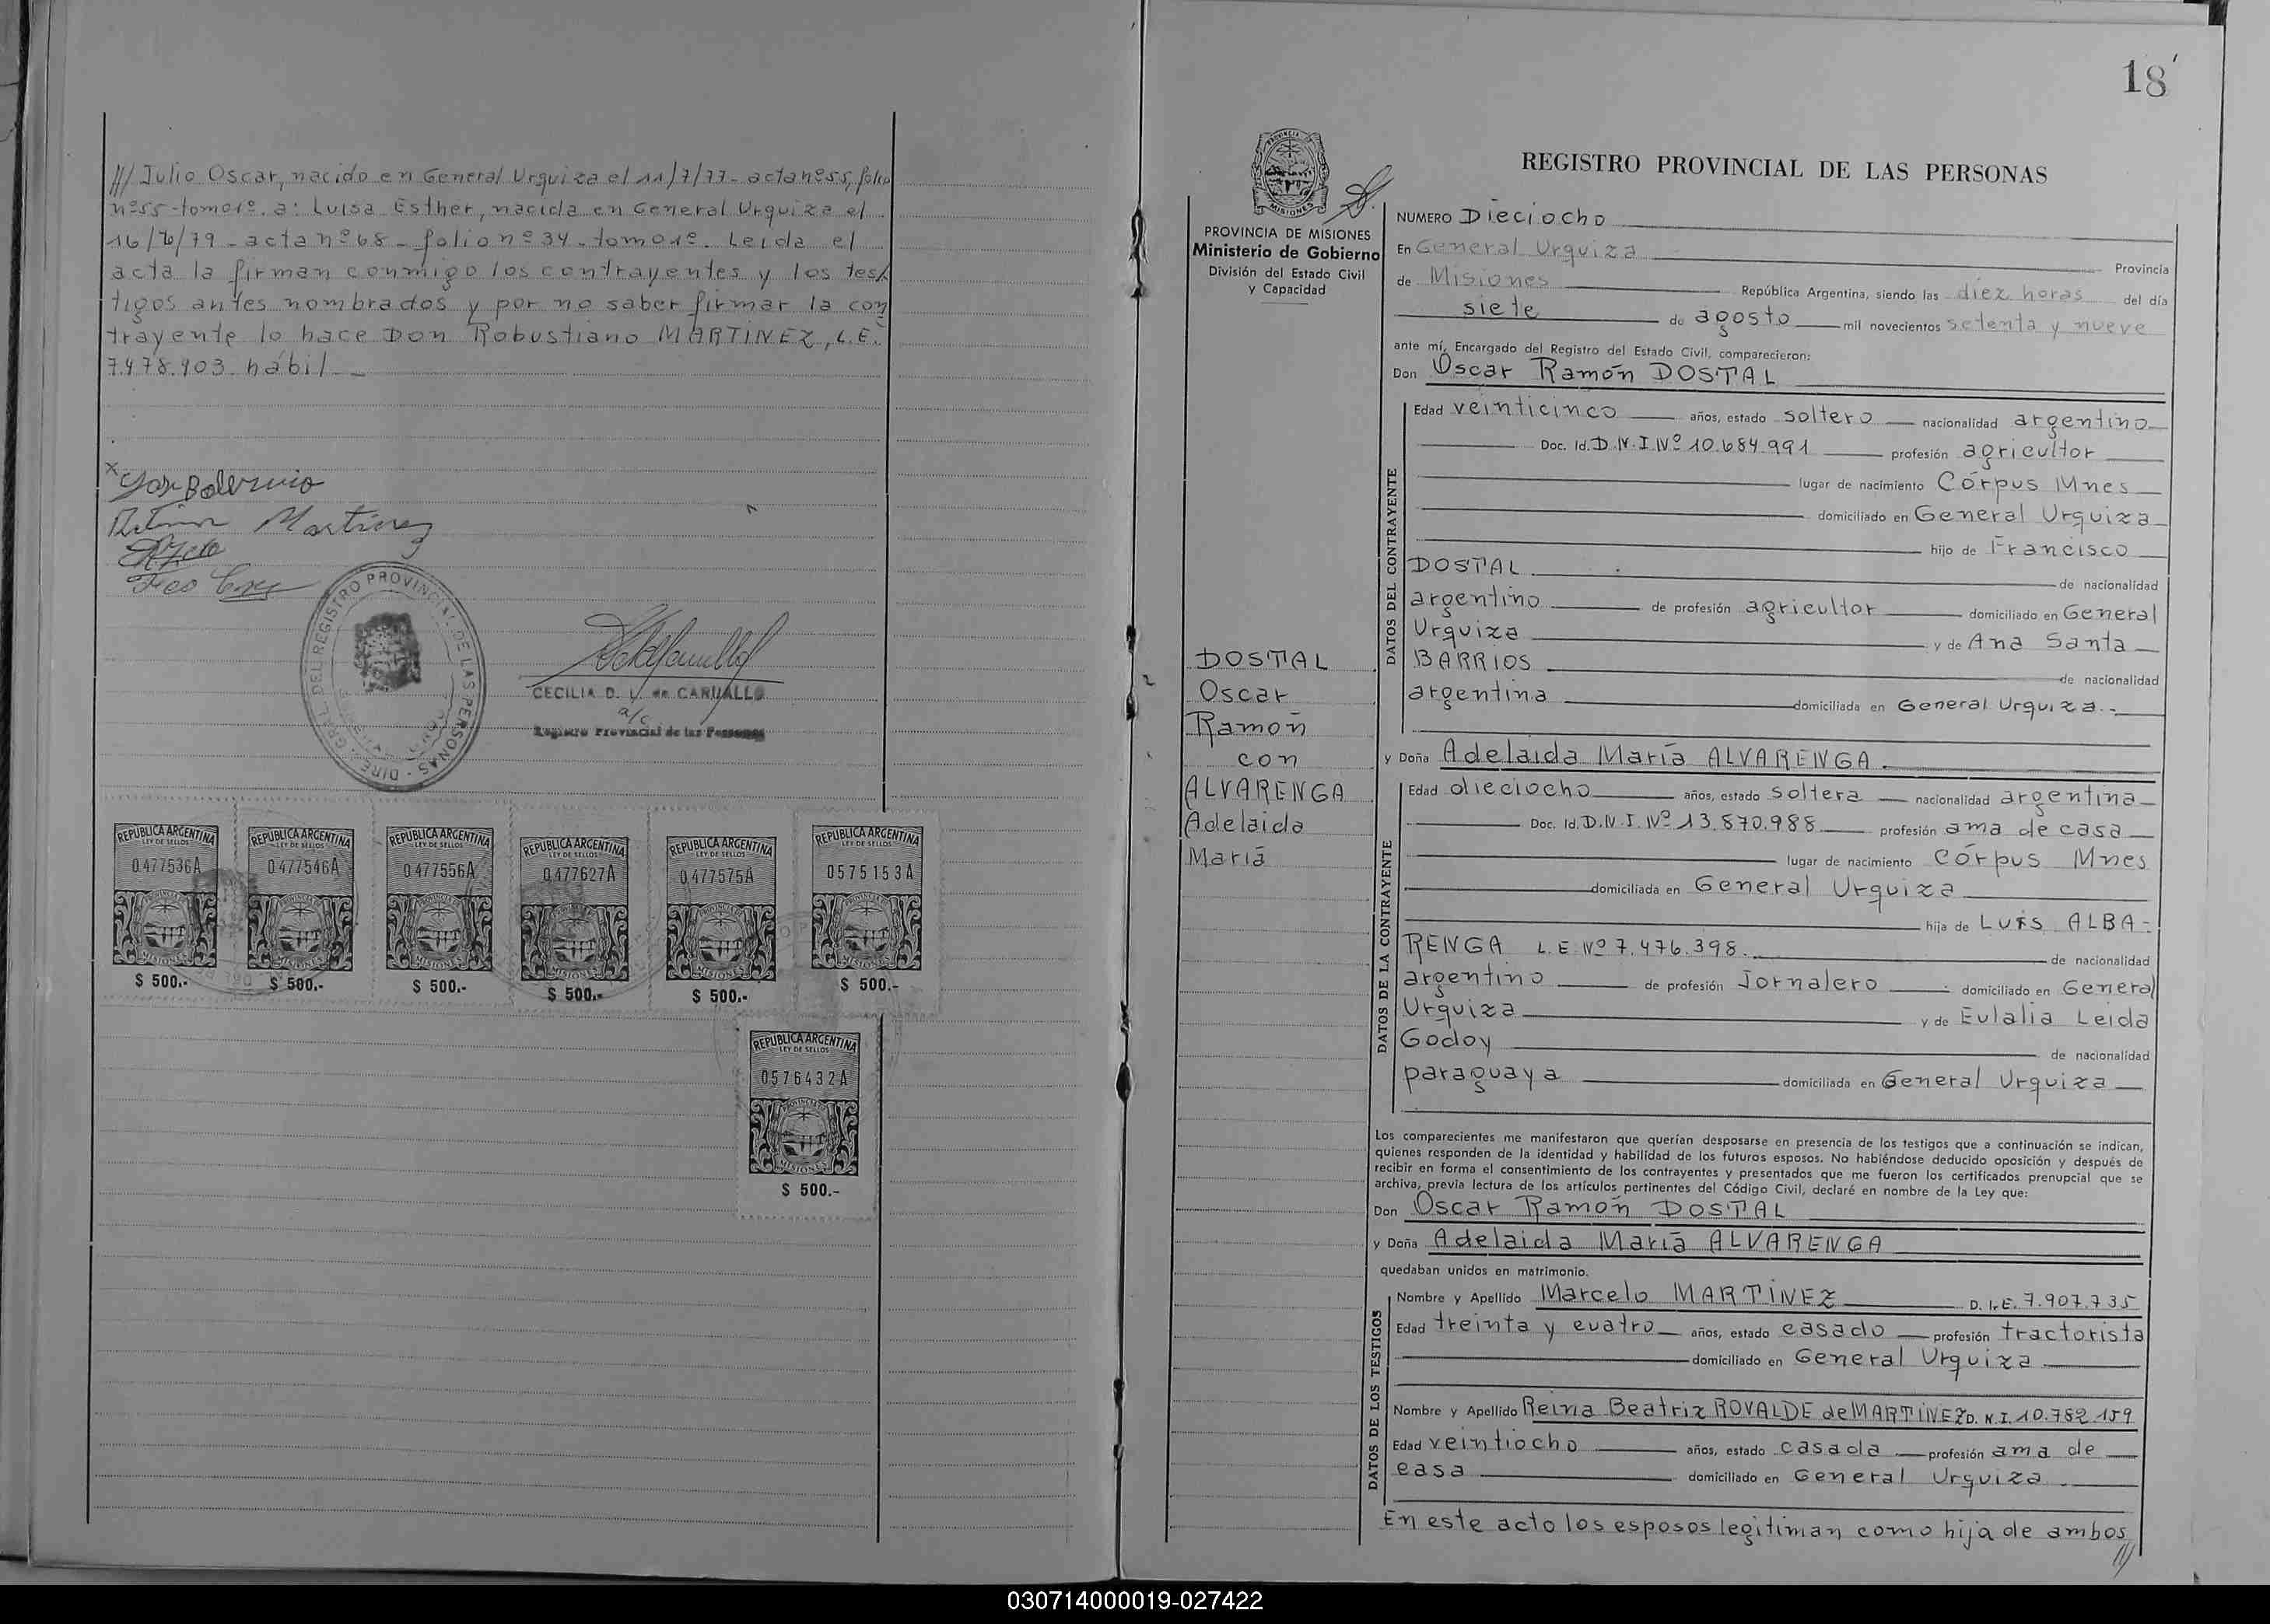 /// Julio Oscar, nacido en General Urquiza el 11/7/77 - acta nº 55, folio
nº 55 - tomo 1º. a: Luisa Esther, nacida en General Urquiza el
16/6/79 - acta nº 68 - folio nº 34 - tomo 1º. Leida el
acta la firman conmigo los contrayentes y los tes/
tigos antes nombrados y por no saber firmar la con
trayente lo hace Don Robustiano MARTINEZ, L.E.
7.478.903 hábil
Martinez
DIRE. GRAL. DEL REGISTRO PROVINCIAL DE LAS PERSONAS
CECILIA D. L. de CARVALLO
a/c
Registro Provincial de las Personas
REPUBLICA ARGENTINA
LEY DE SELLOS
0477536A
PROVINCIA
MISIONES
$ 500.-
REPUBLICA ARGENTINA
LEY DE SELLOS
0477546A
PROVINCIA
MISIONES
$ 500.-
REPUBLICA ARGENTINA
LEY DE SELLOS
0477556A
PROVINCIA
MISIONES
$ 500.-
REPUBLICA ARGENTINA
LEY DE SELLOS
0477627A
PROVINCIA
MISIONES
$ 500.-
REPUBLICA ARGENTINA
LEY DE SELLOS
0477575A
PROVINCIA
MISIONES
$ 500.-
REPUBLICA ARGENTINA
LEY DE SELLOS
0575153A
PROVINCIA
MISIONES
$ 500.-
REPUBLICA ARGENTINA
LEY DE SELLOS
0576432A
PROVINCIA
MISIONES
$ 500.-
18
PROVINCIA
MISIONES
PROVINCIA DE MISIONES
Ministerio de Gobierno
División del Estado Civil
y Capacidad
DOSTAL
Oscar
Ramón
con
ALVARENGA
Adelaida
María
REGISTRO PROVINCIAL DE LAS PERSONAS
NUMERO Dieciocho
En General Urquiza Provincia
de Misiones República Argentina, siendo las diez horas del día
siete de agosto mil novecientos setenta y nueve
ante mí, Encargado del Registro del Estado Civil, comparecieron:
Don Oscar Ramón DOSTAL
DATOS DEL CONTRAYENTE
Edad veinticinco años, estado soltero nacionalidad argentino
Doc. Id. D.N.I. Nº 10.684.991 profesión agricultor
lugar de nacimiento Córpus Mnes
domiciliado en General Urquiza
hijo de Francisco
DOSTAL de nacionalidad
argentino de profesión agricultor domiciliado en General
Urquiza y de Ana Santa
BARRIOS de nacionalidad
argentina domiciliada en General Urquiza.-
y Doña Adelaida María ALVARENGA
DATOS DE LA CONTRAYENTE
Edad dieciocho años, estado soltera nacionalidad argentina
Doc. Id. D.N.I. Nº 13.870.988 profesión ama de casa
lugar de nacimiento Córpus Mnes
domiciliada en General Urquiza
hija de LUIS ALBA-
RENGA L.E. Nº 7.476.398. de nacionalidad
argentino de profesión Jornalero domiciliado en General
Urquiza y de Eulalia Leida
Godoy de nacionalidad
paraguaya domiciliada en General Urquiza
Los comparecientes me manifestaron que querían desposarse en presencia de los testigos que a continuación se indican,
quienes responden de la identidad y habilidad de los futuros esposos. No habiéndose deducido oposición y después de
recibir en forma el consentimiento de los contrayentes y presentados que me fueron los certificados prenupcial que se
archiva, previa lectura de los artículos pertinentes del Código Civil, declaré en nombre de la Ley que:
Don Oscar Ramón DOSTAL
y Doña Adelaida María ALVARENGA
quedaban unidos en matrimonio.
DATOS DE LOS TESTIGOS
Nombre y Apellido Marcelo MARTINEZ D. I. E. 7.907.735
Edad treinta y cuatro años, estado casado profesión tractorista
domiciliado en General Urquiza
Nombre y Apellido Reina Beatriz ROVALDE de MARTINEZ D.N.I. 10.782.159
Edad veintiocho años, estado casada profesión ama de
casa domiciliado en General Urquiza
En este acto los esposos legitiman como hija de ambos
///
030714000019-027422